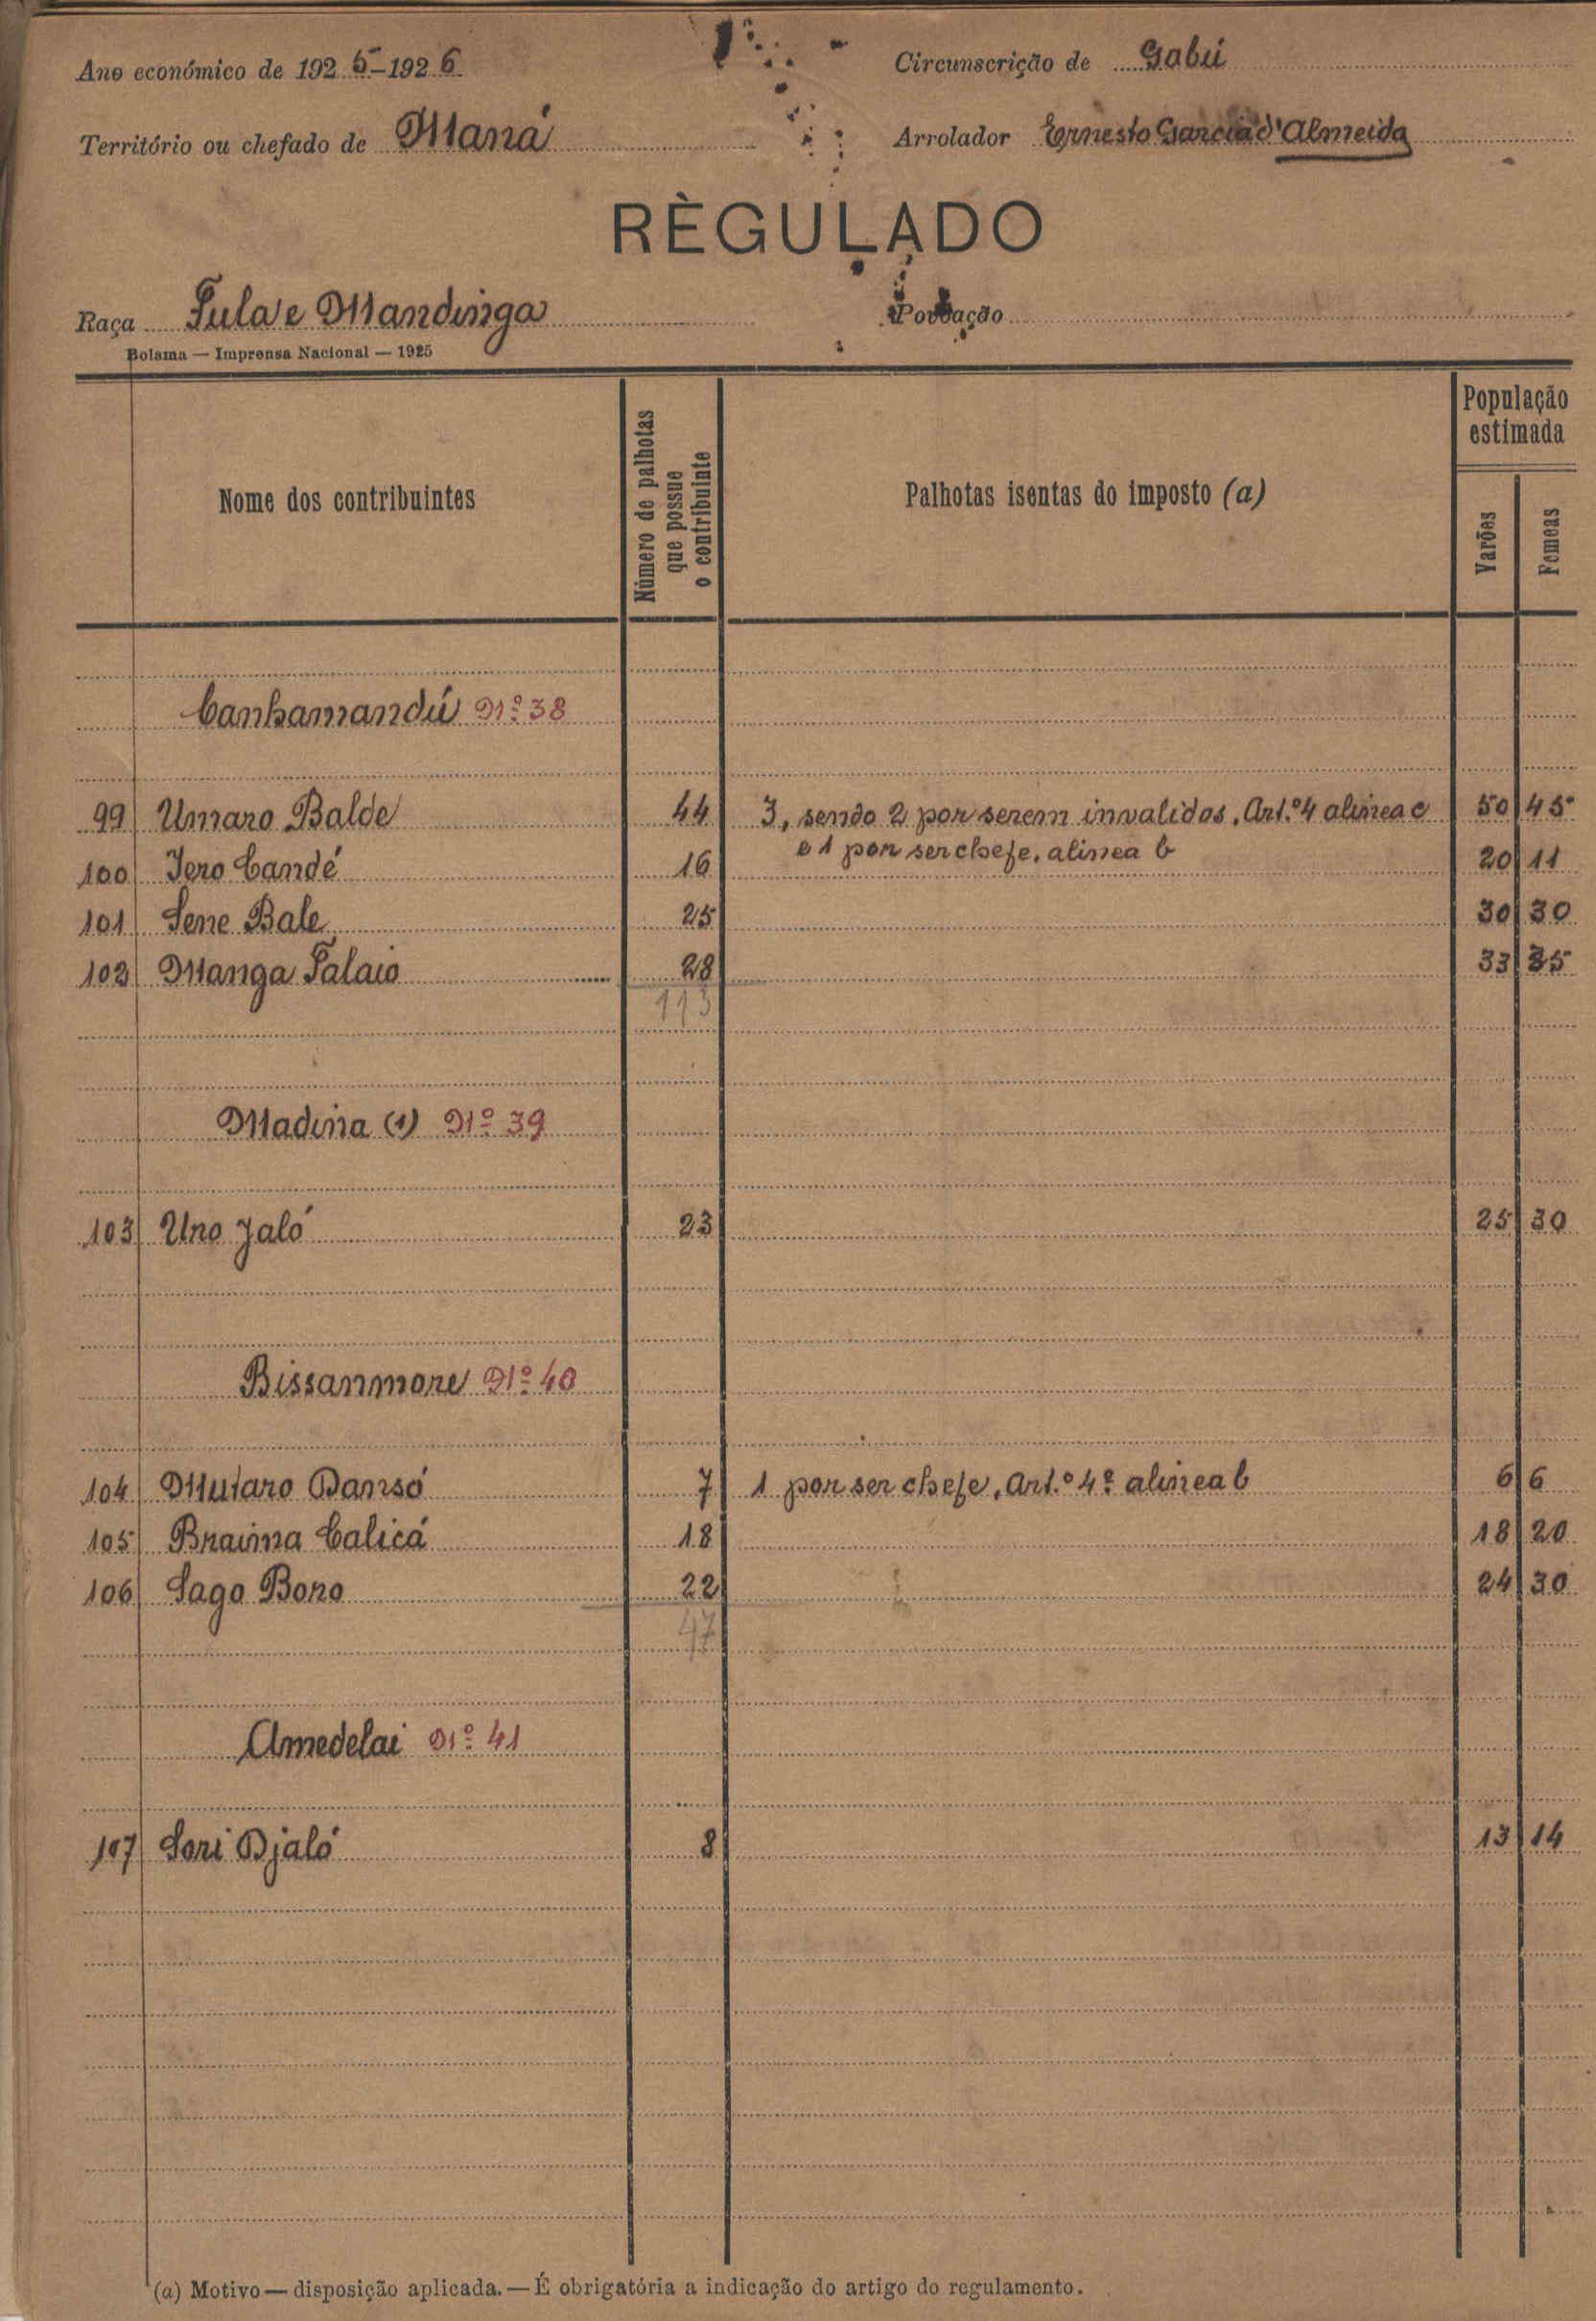 Ano económico de 1925-1926
Circunscrição de Gabú
Território ou chefado de Maná
Arrolador Ernesto Garcia d'Almeida
RÈGULADO
Raça Fula e Mandinga
Povoação
Bolama — Imprensa Nacional — 1925
Nome dos contribuintes
Número de palhotas que possue o contribuinte
Palhotas isentas do imposto (a)
População estimada
Varões
Femeas
Canhamandú Nº 38
99 Umaro Balde 44 3, sendo 2 por serem invalidos, Art.º 4 alinea c 50 45
e 1 por ser chefe, alinea b
100 Jero Candé 16 20 11
101 Sene Bale 25 30 30
102 Manga Falaio 28 33 35
113
Madina (1) Nº 39
103 Uno Jaló 23 25 30
Bissanmore Nº 40
104 Mutaro Dansó 7 1 por ser chefe, Art.º 4º alinea b 6 6
105 Braima Calicá 18 18 20
106 Sago Boro 22 24 30
47
Amedelai Nº 41
107 Sori Djaló 8 13 14
(a) Motivo — disposição aplicada. — É obrigatória a indicação do artigo do regulamento.